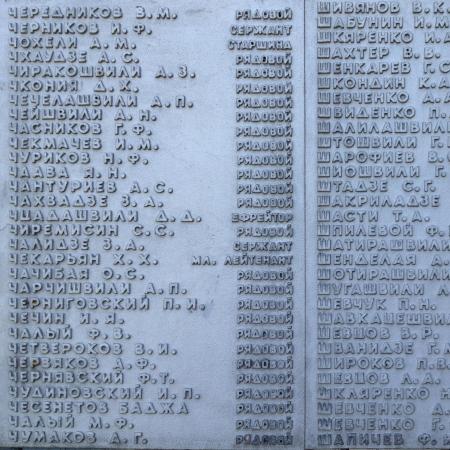 ЧЕРЕДНИКОВ В.М. РЯДОВОЙ
ЧЕРНИКОВ И.Ф. СЕРЖАНТ
ЧОХЕЛИ А.М. СТАРШИНА
ЧХАУДЗЕ А.С. РЯДОВОЙ
ЧИРАКОШВИЛИ А.З. РЯДОВОЙ
ЧКОНИЯ Д.Х. РЯДОВОЙ
ЧЕЧЕЛАШВИЛИ А.П. РЯДОВОЙ
ЧЕЙШВИЛИ А.Н. РЯДОВОЙ
ЧАСНИКОВ Г.Ф. РЯДОВОЙ
ЧЕКМАЧЕВ И.М. РЯДОВОЙ
ЧУРИКОВ Н.Ф. РЯДОВОЙ
ЧААВА Я.Н. РЯДОВОЙ
ЧАНТУРИЕВ А.С. РЯДОВОЙ
ЧАХВАДЗЕ З.А. РЯДОВОЙ
ЧЦАДАШВИЛИ Д.Д. ЕФРЕЙТОР
ЧИРЕМИСИН С.С. РЯДОВОЙ
ЧАЛИДЗЕ З.А. СЕРЖАНТ
ЧЕКАРЬЯН Х.Х. МЛ. ЛЕЙТЕНАНТ
ЧАЧИБАЯ О.С. РЯДОВОЙ
ЧАРЧИШВИЛИ А.П. РЯДОВОЙ
ЧЕРНИГОВСКИЙ П.И. РЯДОВОЙ
ЧЕЧИН И.Я. РЯДОВОЙ
ЧАЛЫЙ Ф.В. РЯДОВОЙ
ЧЕТВЕРОКОВ В.И. РЯДОВОЙ
ЧЕРВЯКОВ А.Ф. РЯДОВОЙ
ЧЕРНЯВСКИЙ Ф.Т. РЯДОВОЙ
ЧУДИНОВСКИЙ И.П. РЯДОВОЙ
ЧЕСЕНЕТОВ БАДЖА РЯДОВОЙ
ЧАЛЫЙ М.Ф. РЯДОВОЙ
ЧУМАКОВ А.Г. РЯДОВОЙ
ШИВЯНОВ В.К.
ШАБУНИН И.М.
ШКЯРЕНКО И.
ШАХТЕР В.В.
ШЕНКАРЕВ Г.С.
ШКОНДИН К.А.
ШЕВЧЕНКО А.А.
ШВИДЕНКО П.
ШАЛИЛАШВИЛИ
ШТОШВИЛИ Г.
ШАРОФИЕВ В.
ШИОШВИЛИ Г.
ШТАДЗЕ С.Г.
ШАКРИЛАДЗЕ
ШАСТИ Т.А.
ШПИЛЕВОЙ Ф.
ШАТИРАШВИЛИ
ШЕНДЕЛАЯ А.
ШОТИРАШВИЛИ
ШУГАШВИЛИ
ШЕВЧУК П.Н.
ШАВХАЦЕШВИЛ
ШЕВЦОВ В.Р.
ШВАНИДЗЕ Г.
ШИРОКОВ П.В.
ШЕВЦОВ Л.А.
ШКЛЯРЕНКО Н
ШЕВЧЕНКО А.
ШЕВЧЕНКО Г.
ШАПИЧЕВ Ф.